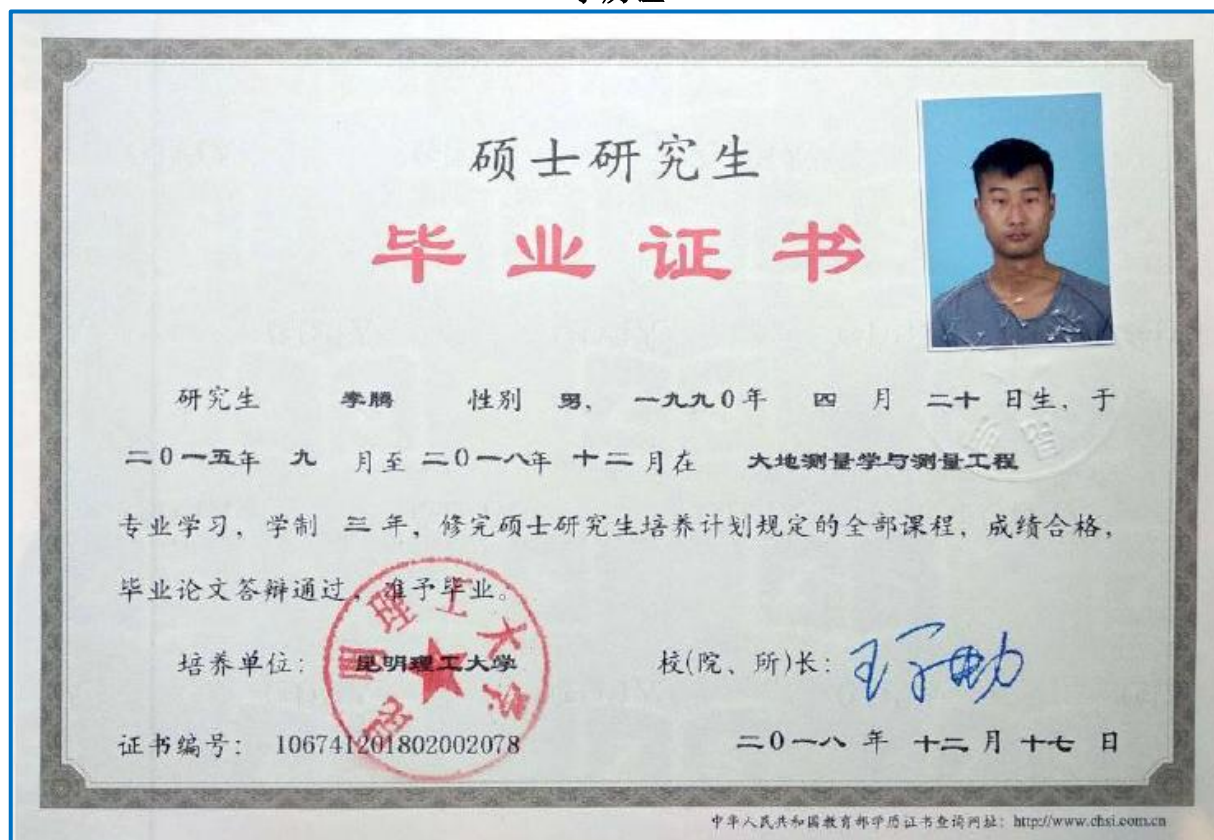 硕士研究生
毕业证书
研究生 李腾 性别 男、 一九九0年 四 月 二十 日生、于
二0一五年 九 月至 二0一八年 十二 月在 大地测量学与测量工程
专业学习，学制 三 年，修完硕士研究生培养计划规定的全部课程，成绩合格，
毕业论文答辩通过，准予毕业。
培养单位： 昆明理工大学 校(院、所)长：
昆明理工大学
证书编号： 106741201802002078 二0一八 年 十二 月 十七 日
中华人民共和国教育部学历证书查询网址：http://www.chsi.com.cn